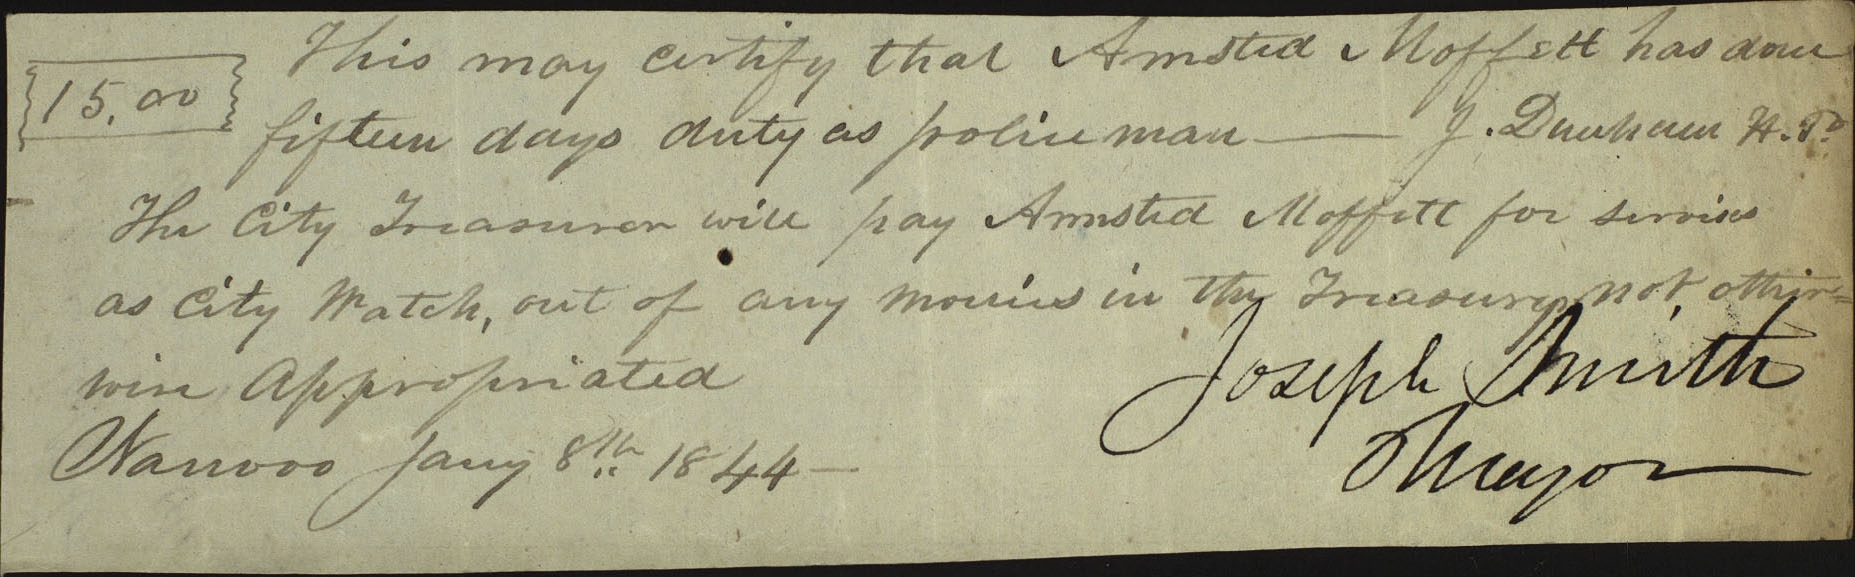 15.00
This may certify that Armsted Moffett has done
fifteen days duty as policeman — J. Dunham H. P.
The City Treasurer will pay Armsted Moffett for servises
as City Watch, out of any monies in the Treasury not other=
wise Appropriated
Joseph Smith
Mayor
Nauvoo Jany 8th 1844 —